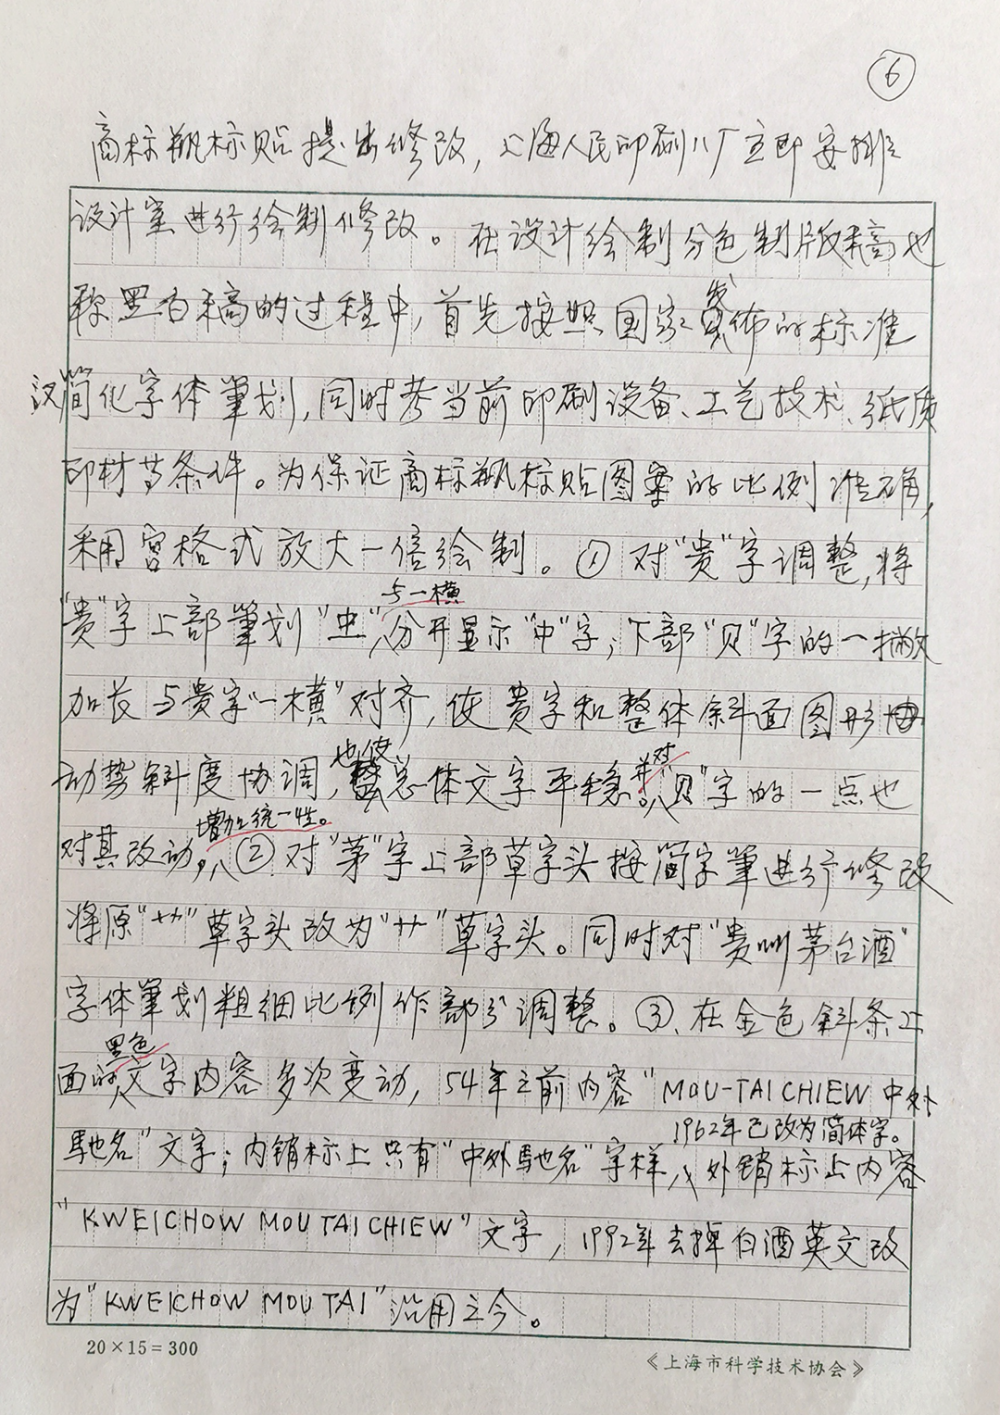 ⑥
商标瓶标贴提出修改，上海人民印刷八厂立即安排
设计室进行绘制修改。在设计绘制分色制版稿也
称黑白稿的过程中，首先按照国家发佈的标准
汉简化字体筆划，同时考当前印刷设备、工艺技术、纸质
印材等条件。为保证商标瓶标贴图案的比例准确，
采用宫格式放大一倍绘制。①对"贵"字调整，将
"贵"字上部筆划"虫"与一横分开显示"中"字；下部"贝"字的一撇
加长与贵字"一横"对齐，使贵字和整体斜面图形
动势斜度协调，也使总体文字平稳。并对"贝"字的一点也
对其改动，增加统一性。②对"茅"字上部草字头按简字筆进行修改
将原"艹"草字头改为"艹"草字头。同时对"贵州茅台酒"
字体筆划粗细比例作部分调整。③、在金色斜条上
面的黑色文字内容多次变动，54年之前内容"MOU-TAI CHIEW 中外
馳名"文字；内销标上只有"中外馳名"字样，1962年已改为简体字。外销标上内容
"KWEICHOW MOU TAI CHIEW"文字，1992年去掉白酒英文改
为"KWEICHOW MOU TAI"沿用之今。
20×15=300
《上海市科学技术协会》